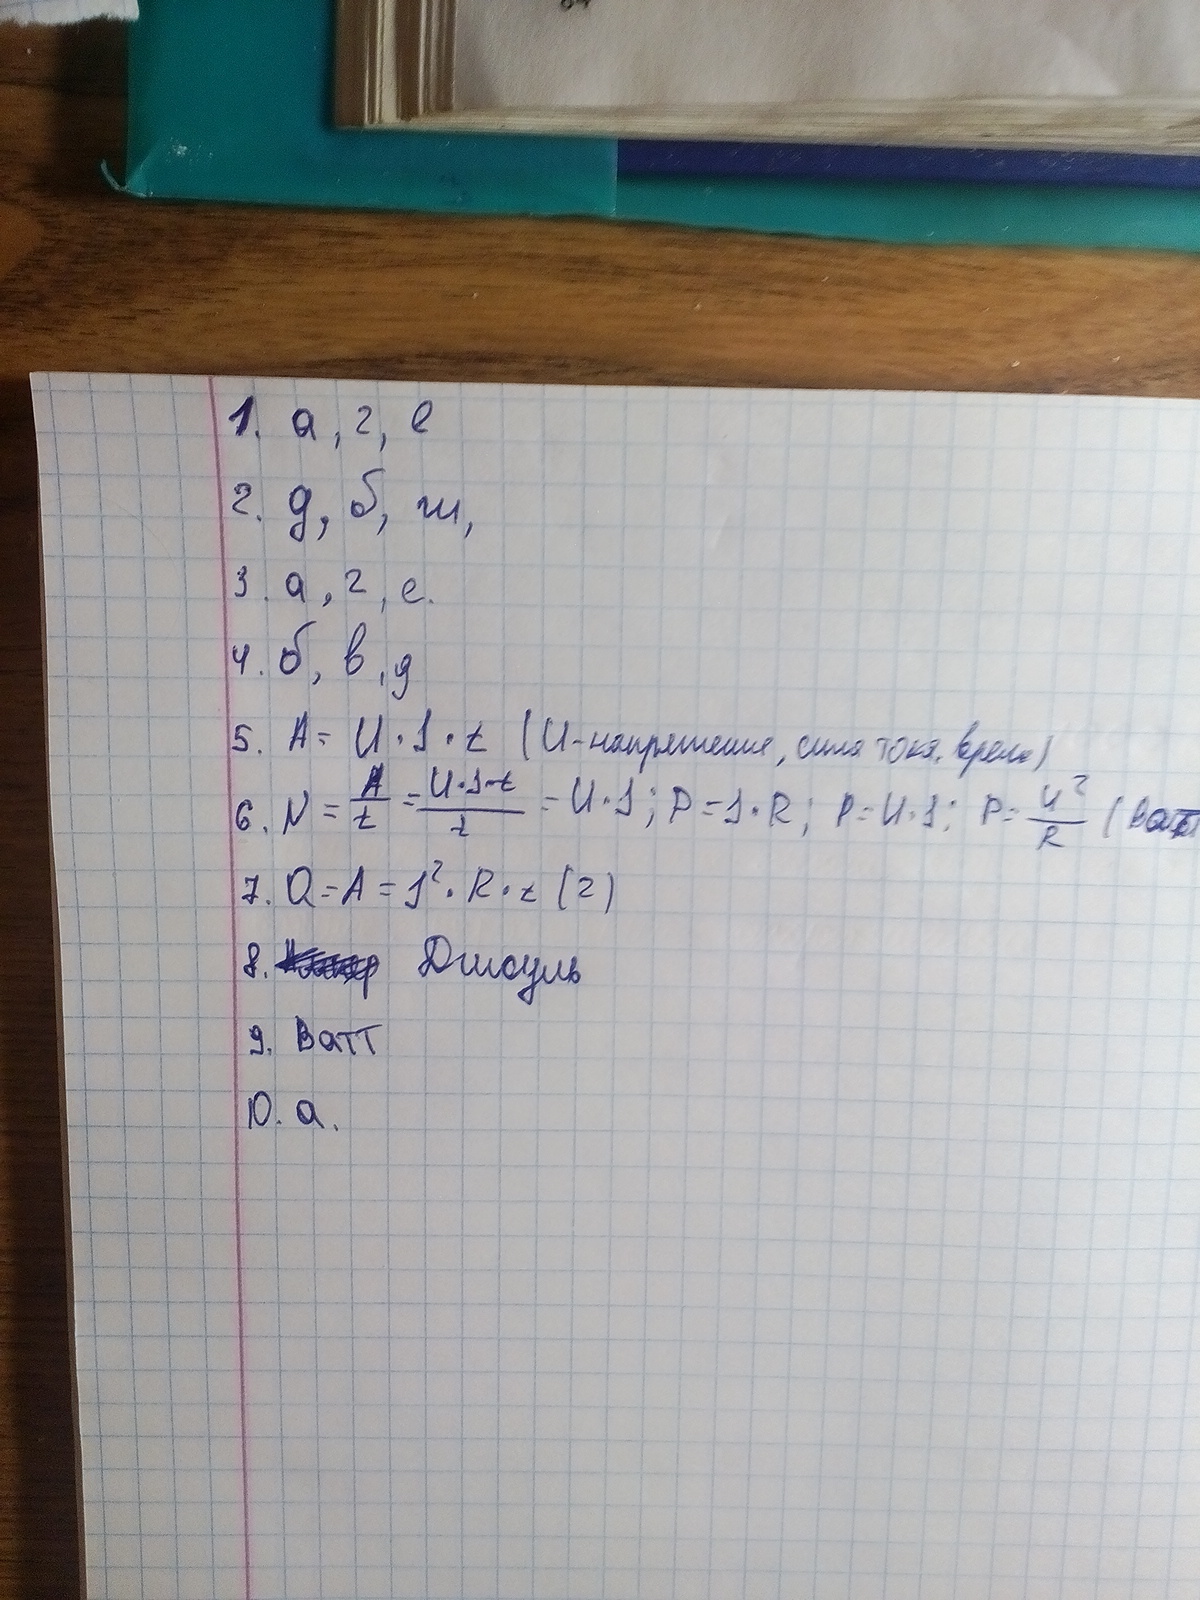 1. а, г, е
2. д, б, ж,
3. а, г, е.
4. б, в, д
5. A = U · I · t (U-напряжение, сила тока, время)
6. N = A/t = U·I·t/t = U·I; P = I·R; P = U·I; P = U²/R (Ватт
7. Q = A = I² · R · t (2)
8. Джоуль
9. Ватт
10. а.